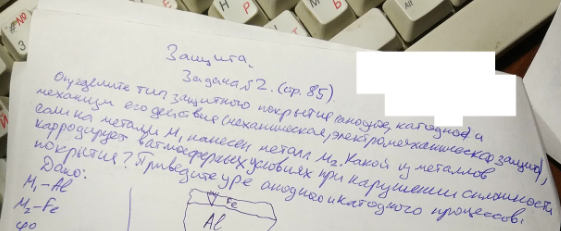 Защита.
Задача №2. (стр. 85).
Определите тип защитного покрытия (анодное, катодное) и
механизм его действия (механическая, электромеханическая защита),
если на металл M₁ нанесен металл M₂. Какой из металлов
карродирует в атмосферных условиях при нарушении сплошности
покрытия? Приведите ур-е анодного и катодного процессов.
Дано:
M₁-Al
M₂-Fe
Fe
Al